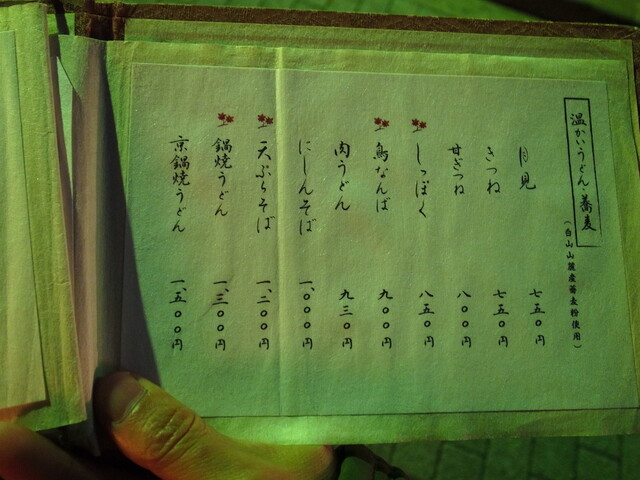 温かいうどん・蕎麦
(白山山麓産蕎麦粉使用)
月見 七五〇円
きつね 七五〇円
甘ぎつね 八〇〇円
しっぽく 八五〇円
鳥なんば 九〇〇円
肉うどん 九三〇円
にしんそば 一、〇〇〇円
天ぷらそば 一、二〇〇円
鍋焼うどん 一、三〇〇円
京鍋焼うどん 一、五〇〇円